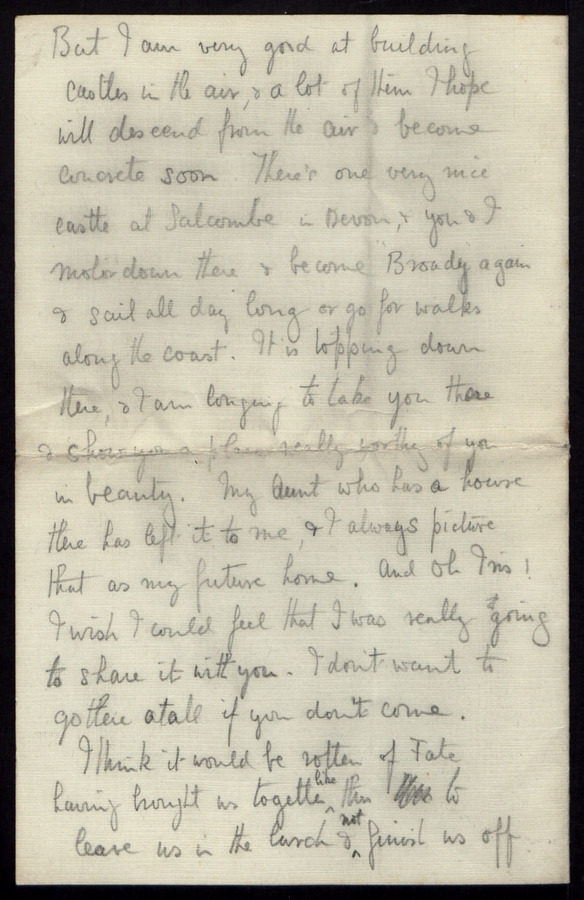 But I am very good at building
castles in the air, & a lot of them I hope
will descend from the air & become
concrete soon. There's one very nice
castle at Salcombe in Devon, & you & I
motor down there & become Broady again
& sail all day long or go for walks
along the coast. It is topping down
there, & I am longing to take you there
& show you a place really worthy of you
in beauty. My Aunt who has a house
there has left it to me, & I always picture
that as my future home. And Oh Iris!
I wish I could feel that I was really going
to share it with you. I don't want to
go there atall if you don't come.
I think it would be rotten of Fate
having brought us together like this to
leave us in the lurch & not finish us off